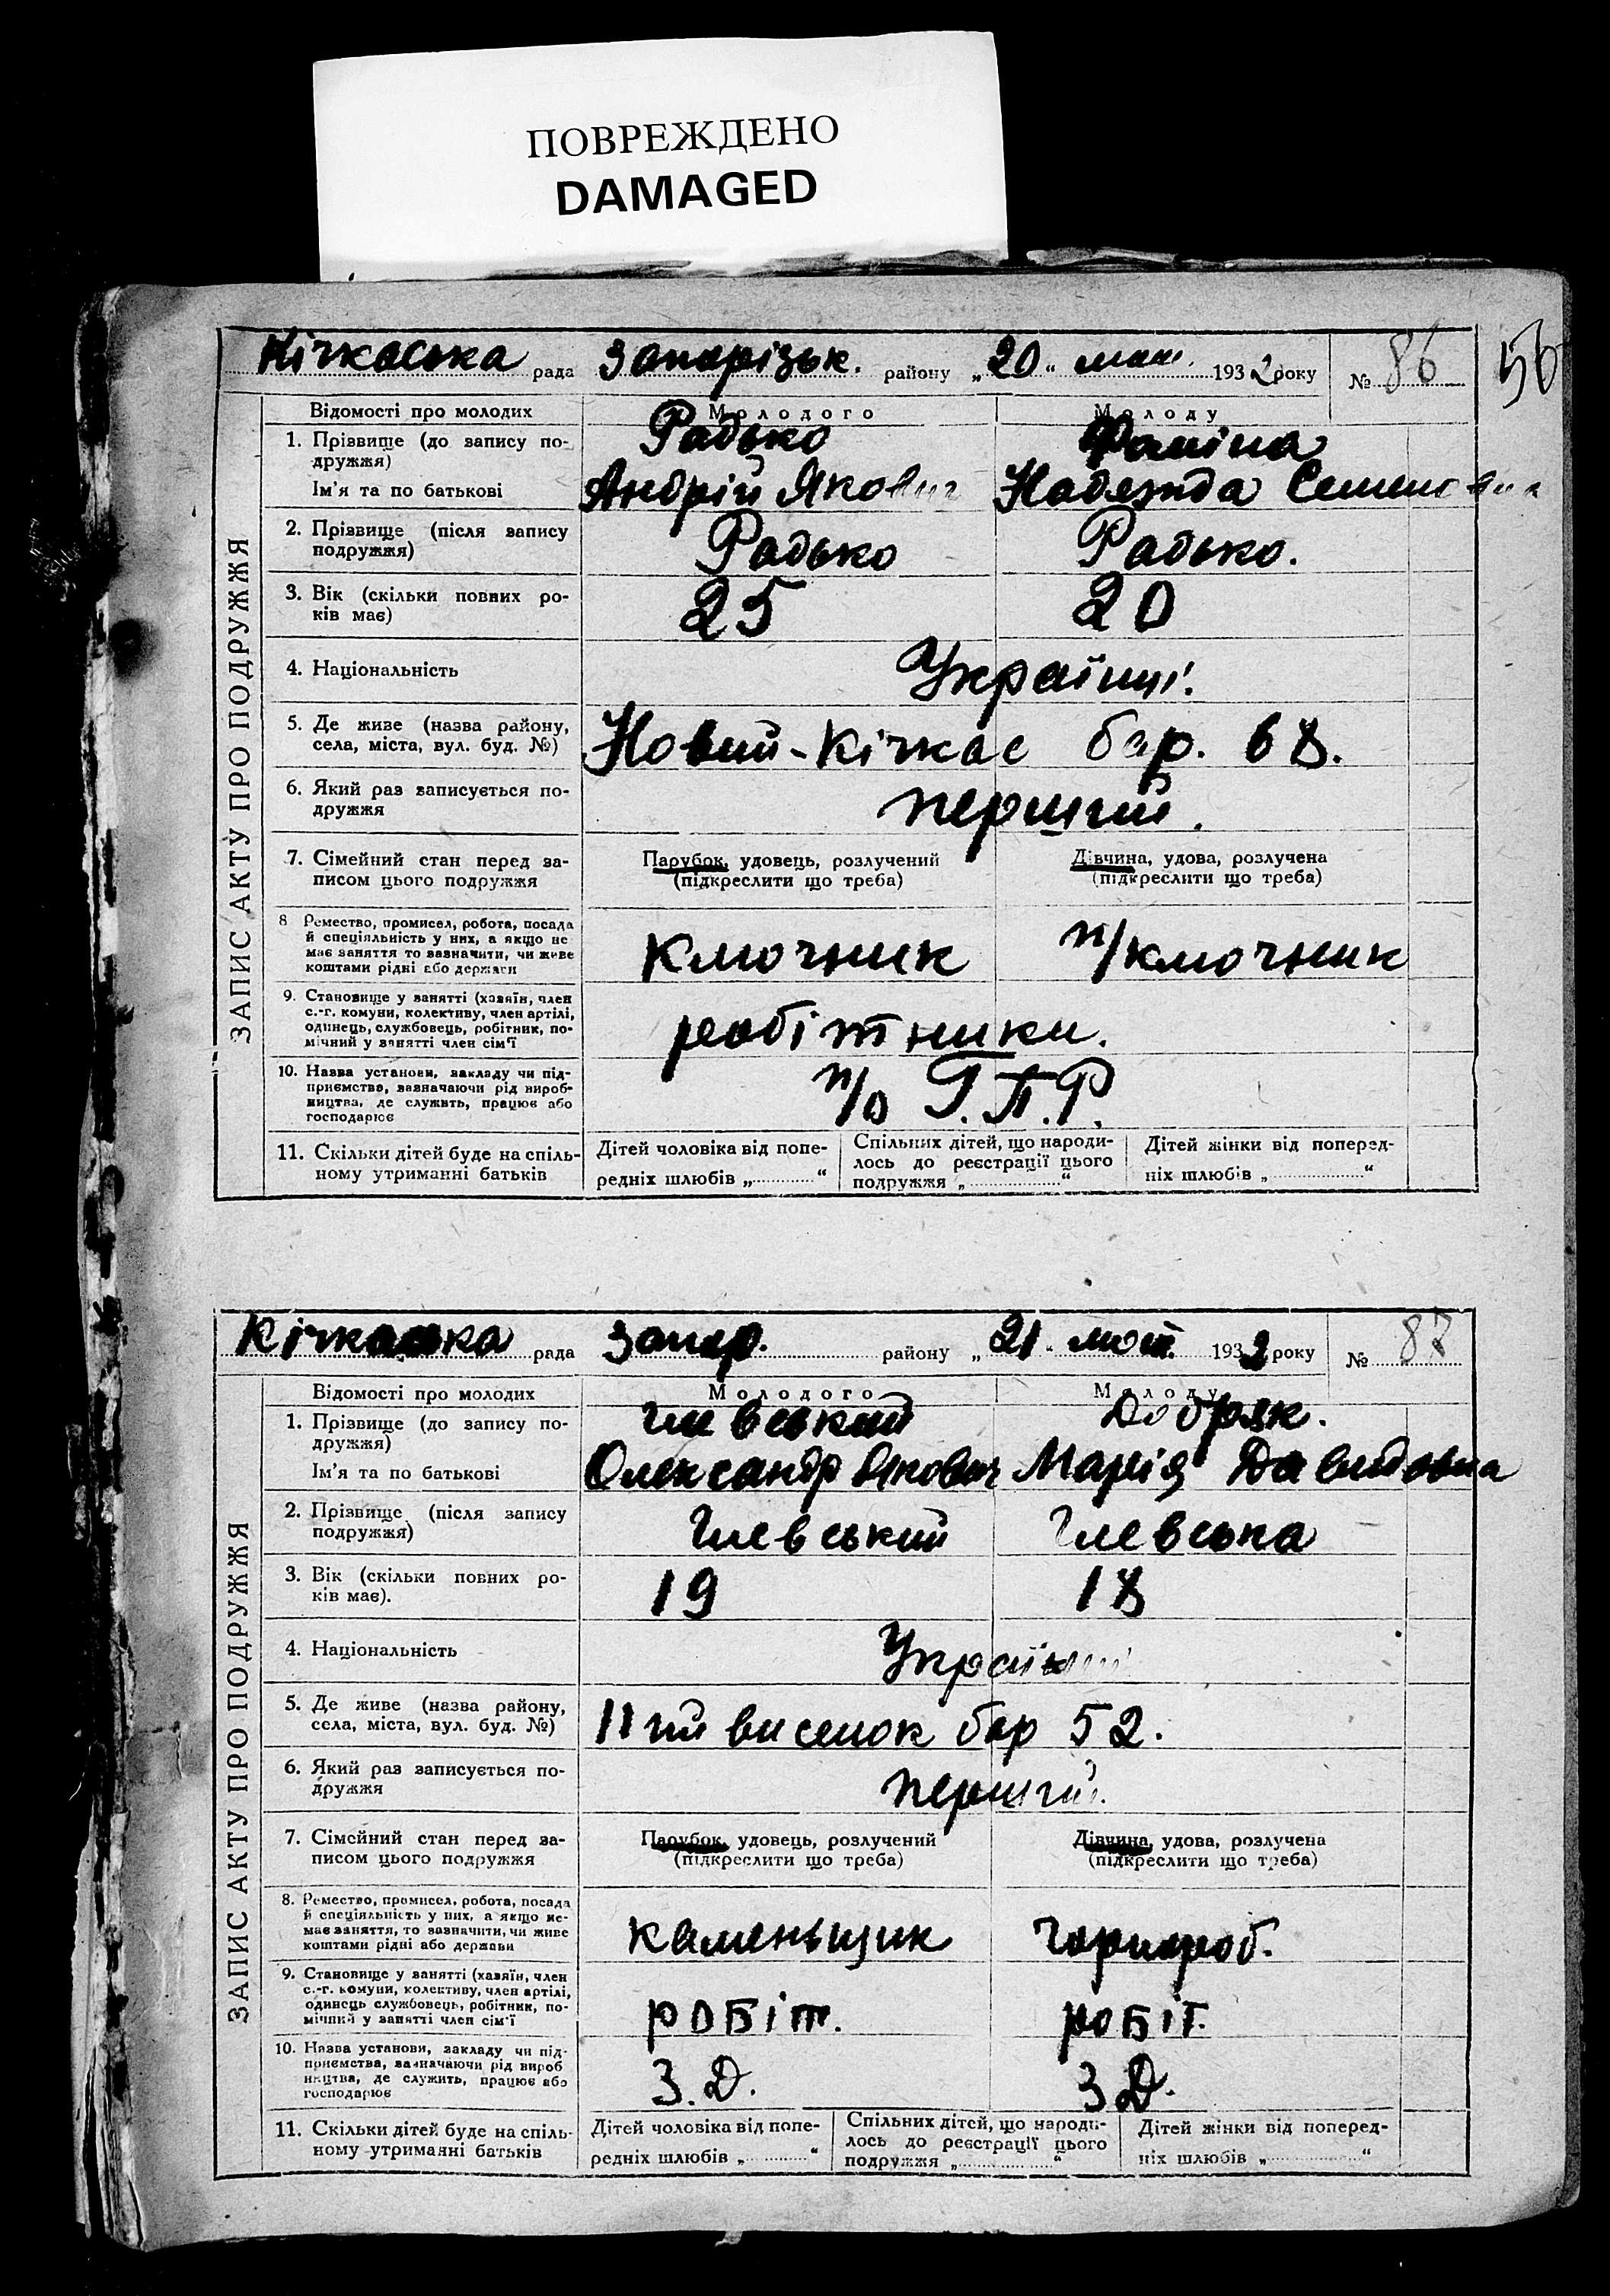 ПОВРЕЖДЕНО
DAMAGED
Кічкаська рада Запорізьк. району „20“ мая 1932 року № 86
56
ЗАПИС АКТУ ПРО ПОДРУЖЖЯ
Відомості про молодих Молодого Молоду
1. Прізвище (до запису по-
дружжя) Радько Фаніна
Ім'я та по батькові Андрій Якович Надежда Семеновна
2. Прізвище (після запису
подружжя) Радько Радько.
3. Вік (скільки повних ро-
ків має) 25 20
4. Національність Українці.
5. Де живе (назва району,
села, міста, вул. буд. №) Новий-Кічкас бар. 68.
6. Який раз записується по-
дружжя перший.
7. Сімейний стан перед за- Парубок, удовець, розлучений Дівчина, удова, розлучена
писом цього подружжя (підкреслити що треба) (підкреслити що треба)
8 Ремество, промисел, робота, посада
й спеціяльність у них, а якщо не
має заняття то зазначити, чи живе
коштами рідні або держави Ключник п/ключник
9. Становище у занятті (хазяїн, член
с.-г. комуни, колективу, член артілі,
одинець, службовець, робітник, по-
мічний у занятті член сім'ї робітники.
10. Назва установи, закладу чи під-
приємства, зазначаючи рід вироб-
ництва, де служить, працює або
господарює п/о Г.П.Р.
11. Скільки дітей буде на спіль-
ному утриманні батьків
Дітей чоловіка від попе-
редніх шлюбів „ “
Спільних дітей, що народи-
лось до реєстрації цього
подружжя „ “
Дітей жінки від поперед-
ніх шлюбів „ “
Кічкаська рада Запор. району „21“ мая 1932 року № 87
ЗАПИС АКТУ ПРО ПОДРУЖЖЯ
Відомості про молодих Молодого Молоду
1. Прізвище (до запису по-
дружжя) Глевський Добряк.
Ім'я та по батькові Олександр Якович Марія Давидовна
2. Прізвище (після запису
подружжя) Глевський Глевська
3. Вік (скільки повних ро-
ків має). 19 18
4. Національність Українці
5. Де живе (назва району,
села, міста, вул. буд. №) 11 ий виселок бар 52.
6. Який раз записується по-
дружжя перший.
7. Сімейний стан перед за- Парубок, удовець, розлучений Дівчина, удова, розлучена
писом цього подружжя (підкреслити що треба) (підкреслити що треба)
8. Ремество, промисел, робота, посада
й спеціяльність у них, а якщо не-
має заняття, то зазначити, чи живе
коштами рідні або держави каменьщик чорнороб.
9. Становище у занятті (хазяїн, член
с.-г. комуни, колективу, член артілі,
одинець службовець, робітник, по-
мічний у занятті член сім'ї робіт. робіт.
10. Назва установи, закладу чи під-
приємства, зазначаючи рід вироб
ництва, де служить, працює або
господарює З.Д. З Д.
11. Скільки дітей буде на спіль-
ному утриманні батьків
Дітей чоловіка від попе-
редніх шлюбів „ “
Спільних дітей, що народи-
лось до реєстрації цього
подружжя „ “
Дітей жінки від поперед-
ніх шлюбів „ “